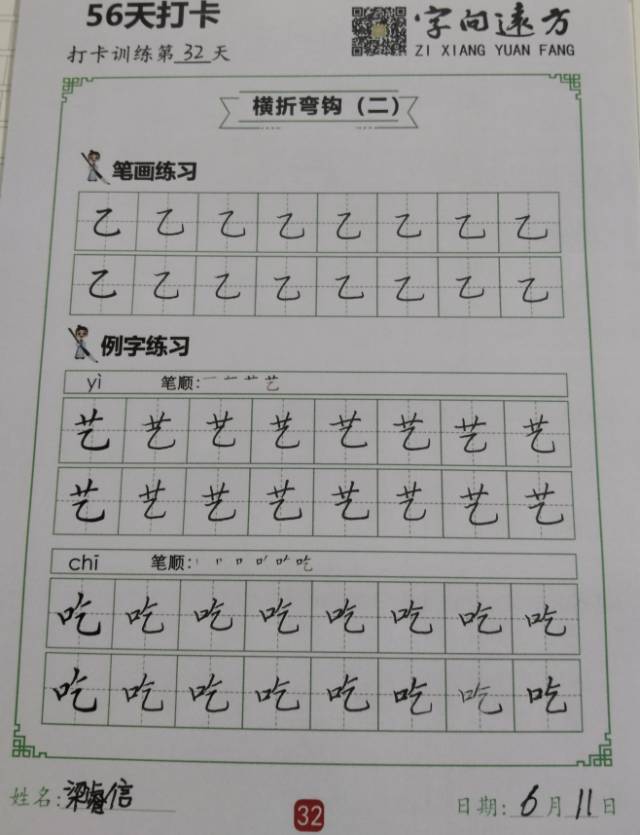 56天打卡
字向远方
ZI XIANG YUAN FANG
打卡训练第32天
横折弯钩（二）
笔画练习
乙 乙 乙 乙 乙 乙 乙 乙
乙 乙 乙 乙 乙 乙 乙 乙
例字练习
yì 笔顺: 一 艹 艺
艺 艺 艺 艺 艺 艺 艺 艺
艺 艺 艺 艺 艺 艺 艺 艺
chī 笔顺: 丨 口 吃
吃 吃 吃 吃 吃 吃 吃 吃
吃 吃 吃 吃 吃 吃 吃 吃
姓名:梁睿信
32
日期: 6月11日